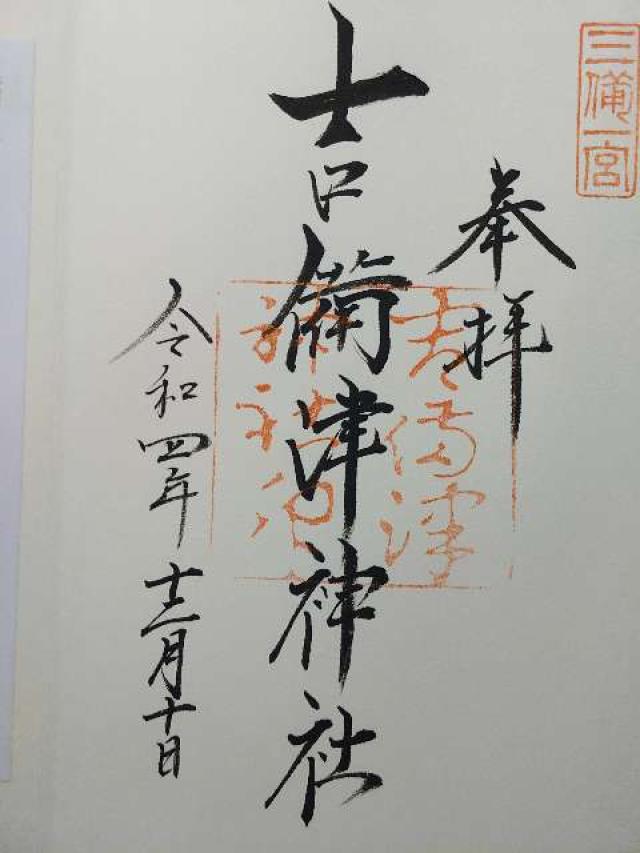 三備一宮
奉拝
吉備津神社
吉備津
令和四年十二月十日